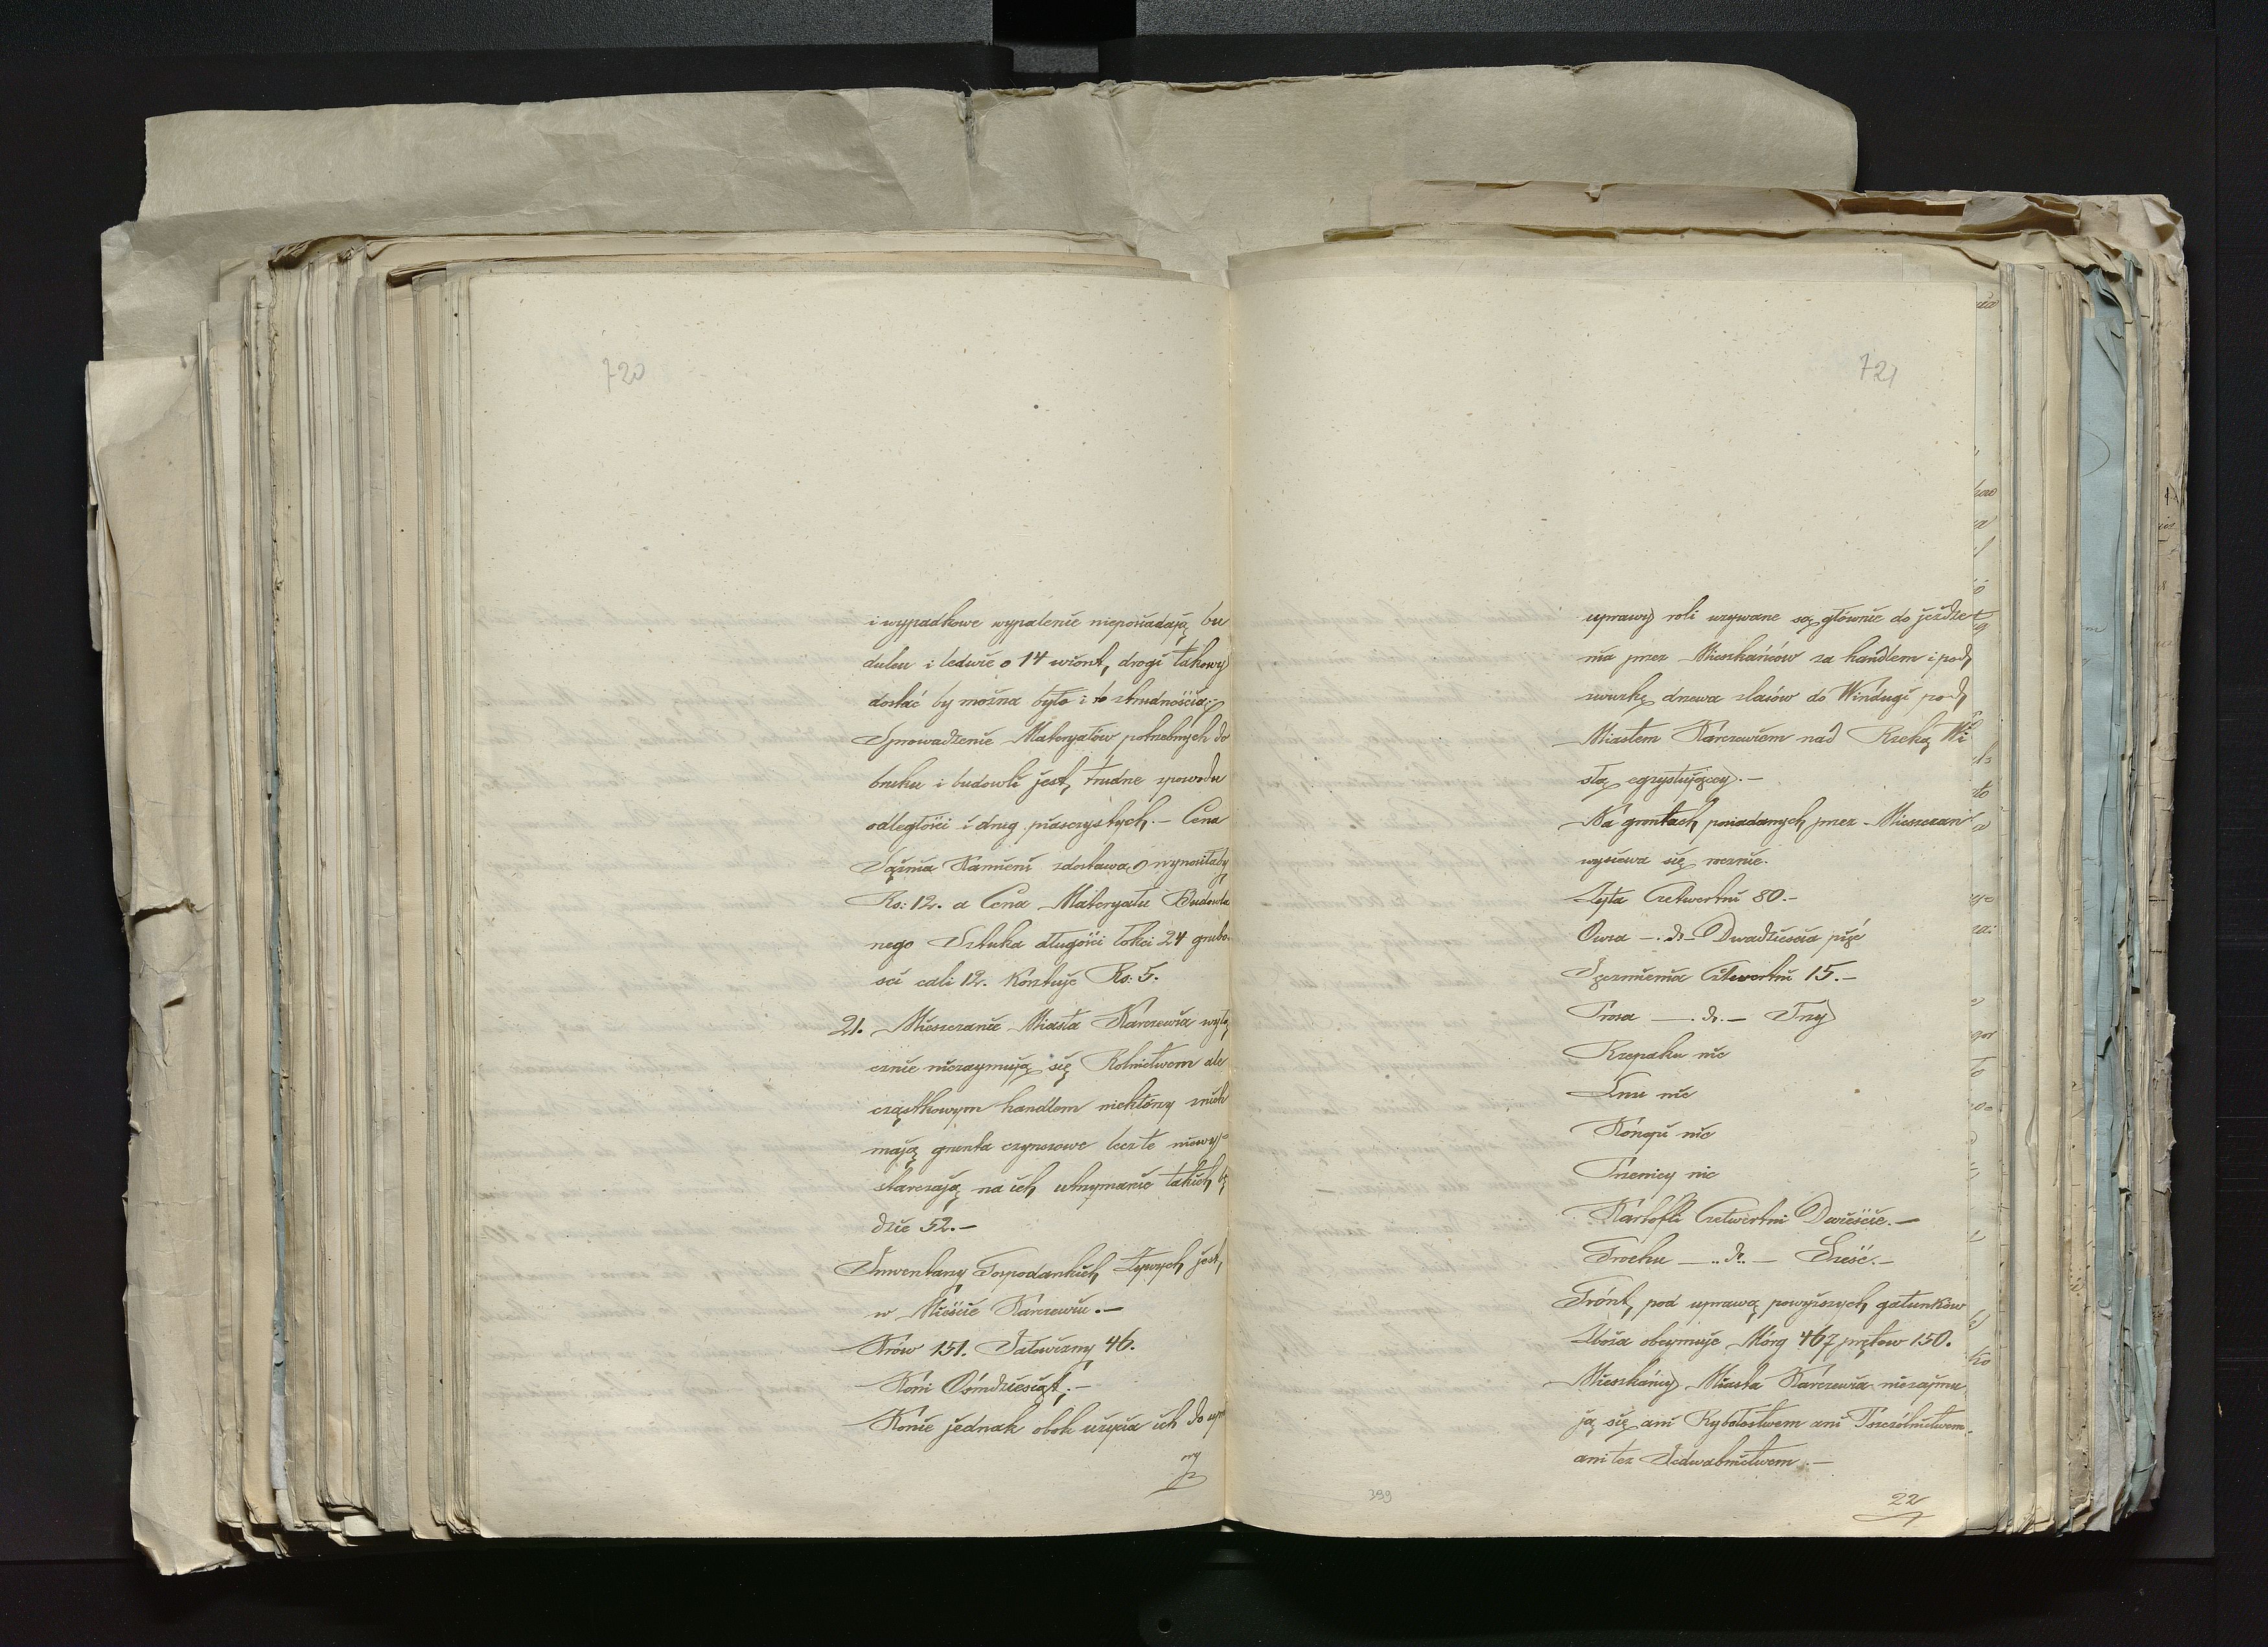 720
i wypadkowe wypalenie nieposiadają bu
dulcu i ledwie o 14 wiorst, drogi takowy
dostać by można było i to ztrudnościa;
Sprowadzenie Materyałów potrzebnych do
bruku i budowli jest, trudne zpowodu
odległości i dróg piasczystych. — Cena
Sążnia Kamieni zdostawą wynosiłaby
Rs: 12. a Cena Materyału Budowla
nego Sztuka długości łokci 24 grubo
ści cali 12. Kosztuje Rs: 5.
21. Mieszczanie Miasta Karczewia wyłą
cznie niezaymują się Rolnictwem ale
cząstkowym handlem niektórzy znich
mają grunta czynszowe lecz te niewy
starczają na ich utrzymanie takich bę
dzie 52. —
Inwentarzy Gospodarskich Żywych jest,
w Mieście Karczewiu. —
Krów 151. Jałowizny 46.
Koni Ośmdziesiąt. —
Konie jednak obok użycia ich do upra
wy
721
uprawy roli używane są głównie do jeżdże
nia przez Mieszkańców za handlem i pod
zwózkę drzewa zlasów do Windugi pod,
Miastem Karczewiem nad Rzeką Wi
słą egzystującey. —
Na grontach posiadanych przez Mieszczan
wysiewa się rocznie.
Żyta Czetwertni 80. —
Owsa — . d° — Dwadzieścia pięć
Jęczmienia Czetwertni 15. —
Prosa — . d°. — Trzy
Rzepaku nic
Lnu nic
Konopi nic
Pszenicy nic
Kartofli Czetwertni Dwieście. —
Grochu — .. d°.. — Sześć. —
Grónt, pod uprawą powyższych gatunków
Zboża obeymuje Mórg 467 prętow 150.
Mieszkańcy Miasta Karczewia niezajmu
ją się ani Rybołostwem ani Pszczólnictwem
ani tez Jedwabnictwem. —
399
22